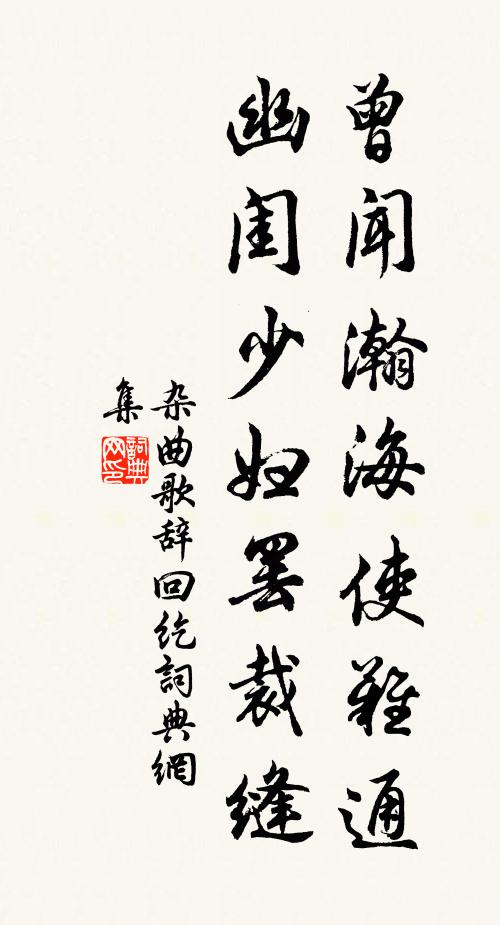 曾闻瀚海使难通
幽闺少妇罢裁缝
杂曲歌辞回纥詞典網
集
詞典
网印